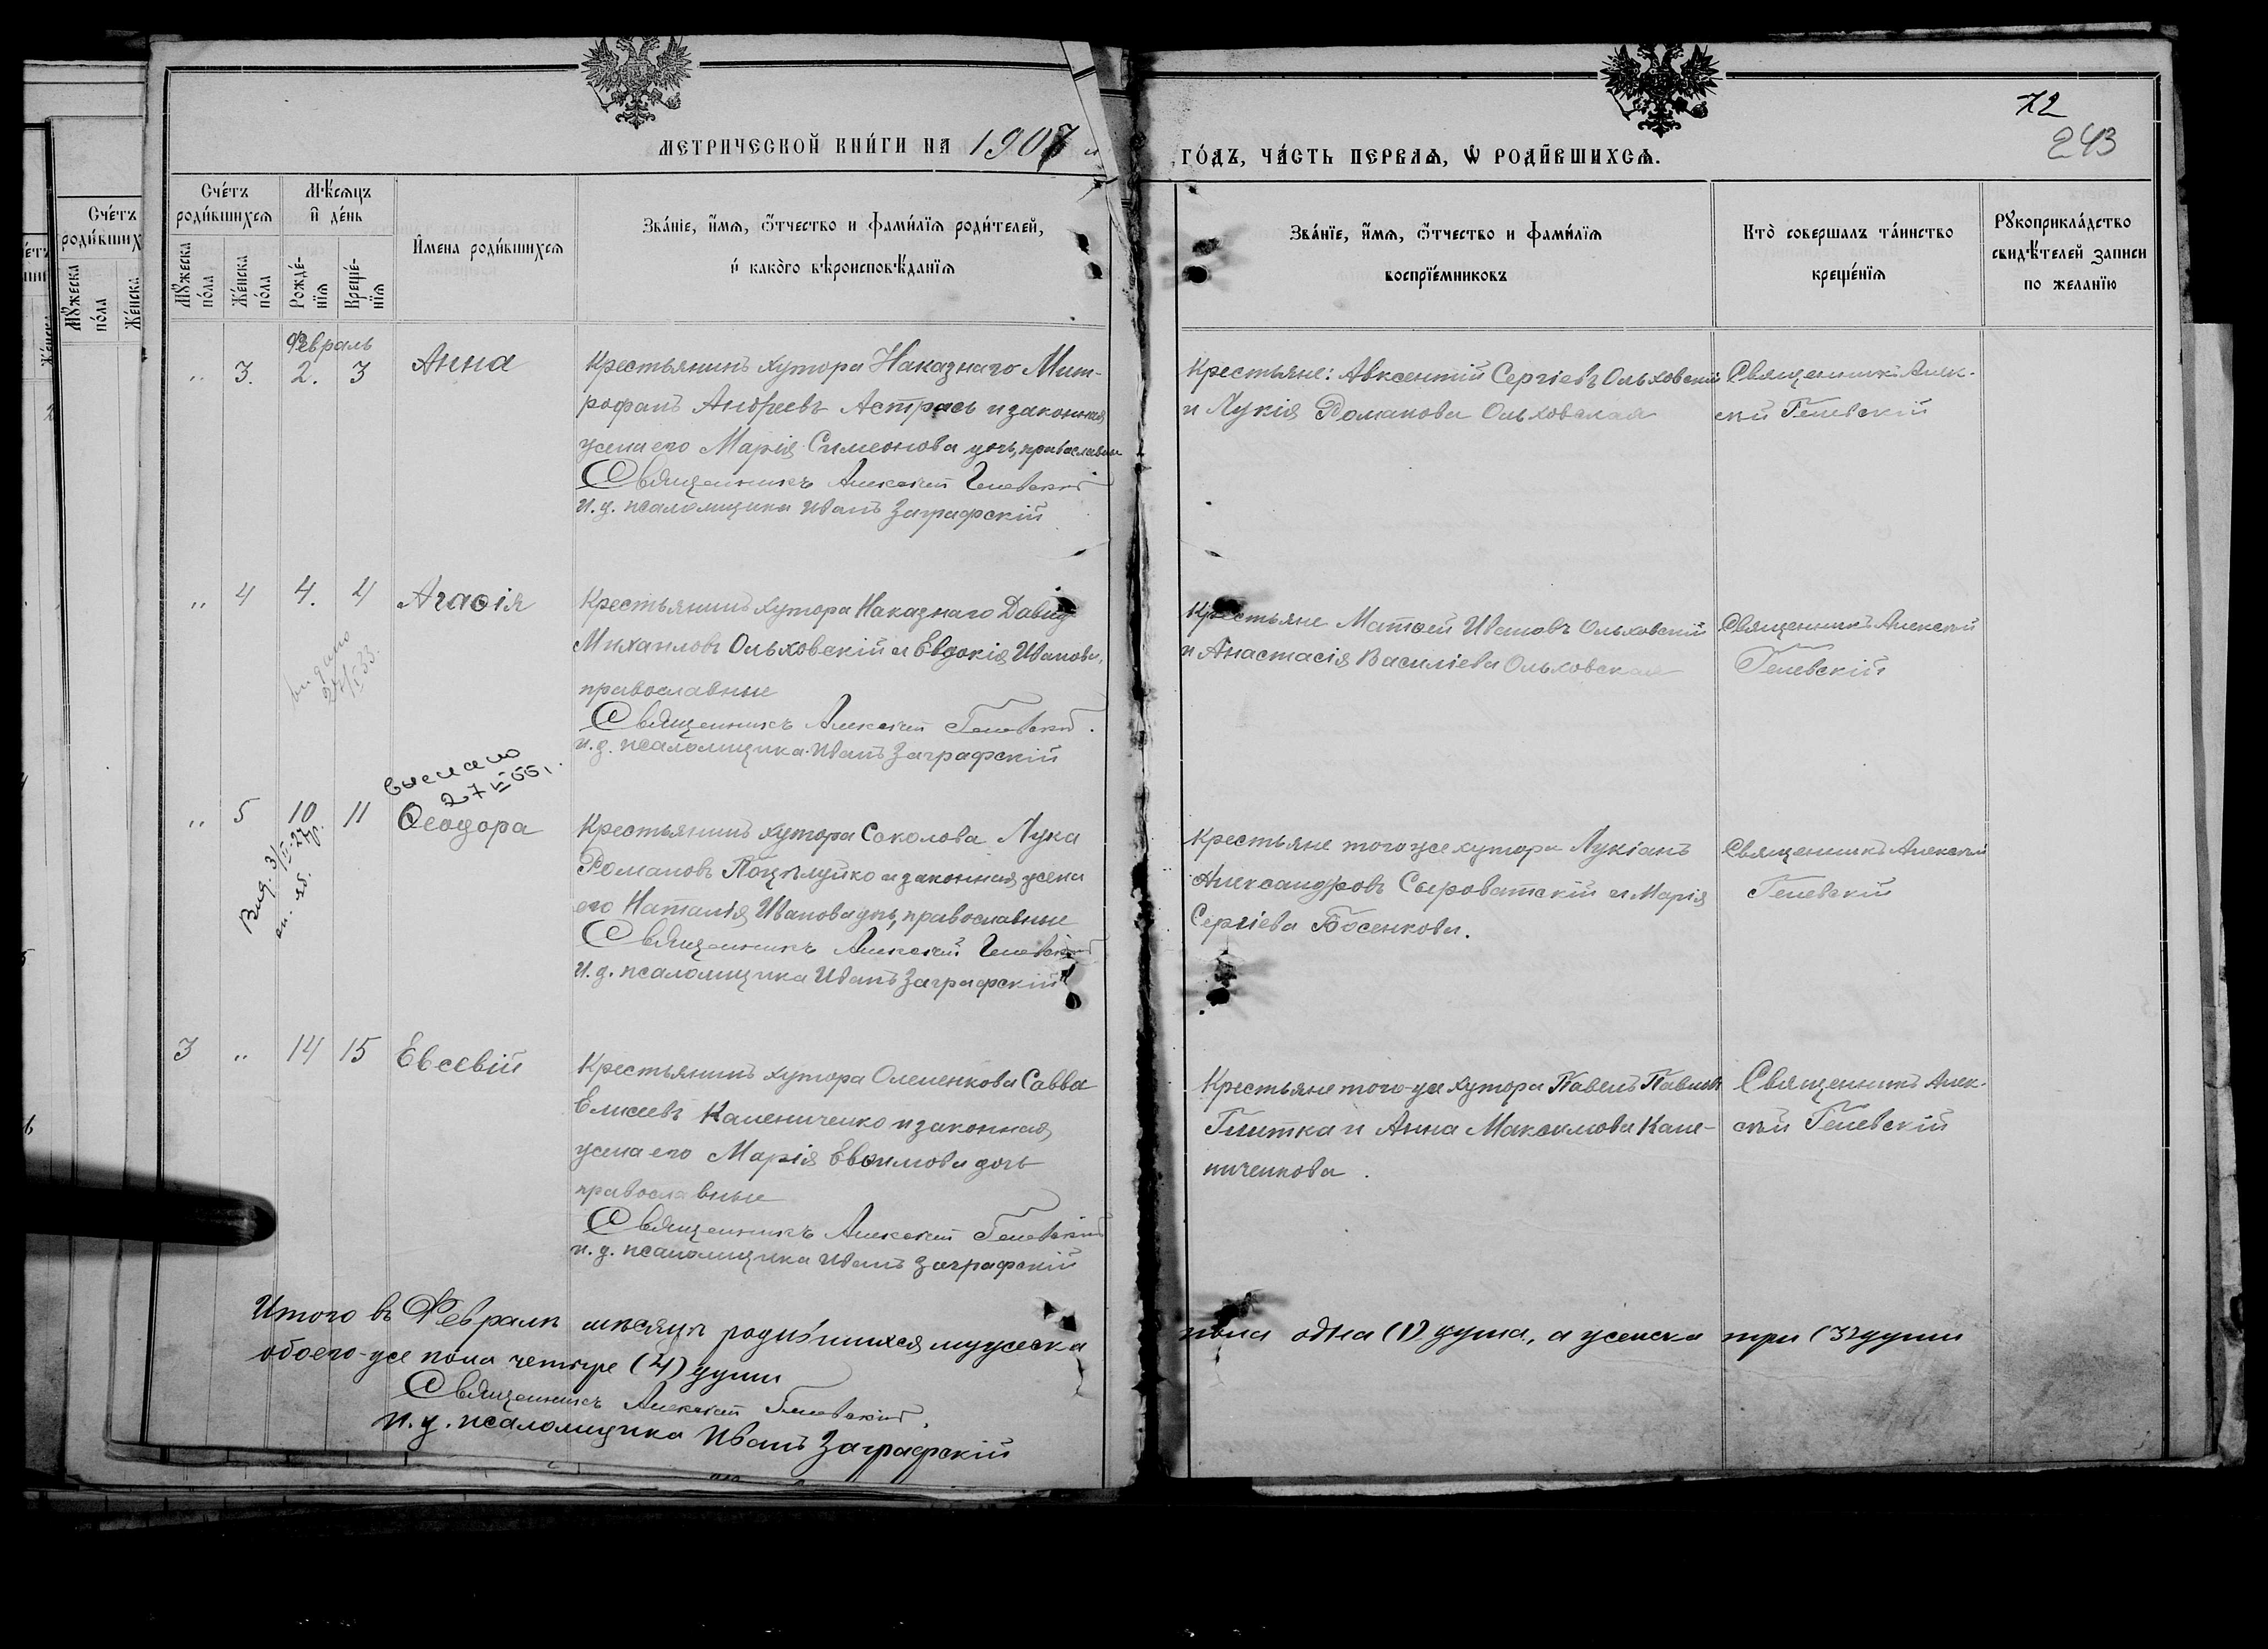 72
243
МЕТРИЧЕСКОЙ КНИ́ГИ НА 1907
ГО́ДЪ, ЧА́СТЬ ПЕ́РВАЯ, Ѽ РОДИ́ВШИХСЯ.
Сче́тъ роди́вшихся
Мѣ́сяцъ и҆ де́нь
И҆мена роди́вшихся
Зва́нїе, и҆́мя, ѻ҆́тчество и фами́лїя роди́телей,
и҆ како́го вѣроисповѣ́данїя
Зва́нїе, и҆́мя, ѻ҆́тчество и фами́лїя
воспрїе́мниковъ
Кто̀ соверша́лъ та́инство
креще́нїя
Рꙋкоприкла́дство
свидѣ́телей записи
по жела́нїю
Мꙋ́жеска по́ла
Же́нска по́ла
Рожде́нїя
Креще́нїя
Февраль
" 3. 2. 3 Анна
Крестьянинъ хутора Наказнаго Мит-
рофанъ Андреевъ Астрась и законная
жена его Марія Симеонова дочь, православные
Священникъ Алексей
И. д. псаломщика Иванъ Заграфскій
Крестьяне: Авксентий Сергіевъ Ольховскій
и Лукія Романова Ольховская
Священникъ Алек-
сѣй
" 4 4. 4 Агаѳія
Крестьянинъ хутора Наказнаго Давид
Михаиловъ Ольховскій и Евдокія Иванова,
православные
Священникъ Алексей
и. д. псаломщика Иванъ Заграфскій
Крестьяне Матѳей Ивановъ Ольховскій
и Анастасія Василіева Ольховская
Священникъ Алексѣй
выдано
выслано
27 VI 55 г.
" 5 10 11 Ѳеодора
Выд. 3/
Крестьянинъ хутора Соколова Лука
Романовъ Поцѣлуйко и законная жена
его Наталія Иванова дочь, православные
Священникъ Алексей
И. д. псаломщика Иванъ Заграфскій
Крестьяне того же хутора Лукіанъ
Александровъ Сыроватскій и Марія
Сергіева Босенкова.
Священникъ Алексѣй
3 " 14 15 Евсевій
Крестьянинъ хутора Олененкова Савва
Елисеевъ Калениченко и законная
жена его Марія Евѳимова дочь
православные
Священникъ Алексей
и. д. псаломщика Иванъ Заграфскій
Крестьяне того-же хутора Павелъ Павловъ
Глитка и Анна Максимова Кале-
ниченкова.
Священникъ Алек-
сѣй
Итого въ Февралѣ мѣсяцѣ родившихся мужеска
пола одна (1) душа, а женска три (3) души
обоего-же пола четыре (4) души
Священникъ Алексей
И. д. псаломщика Иванъ Заграфскій